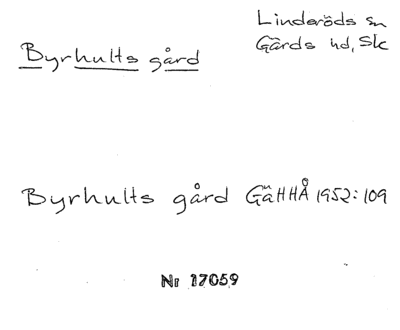 Linderöds sn
Gärds hd, Sk
Byrhults gård
Byrhults gård GäHHÅ 1952:109
Nr 17059